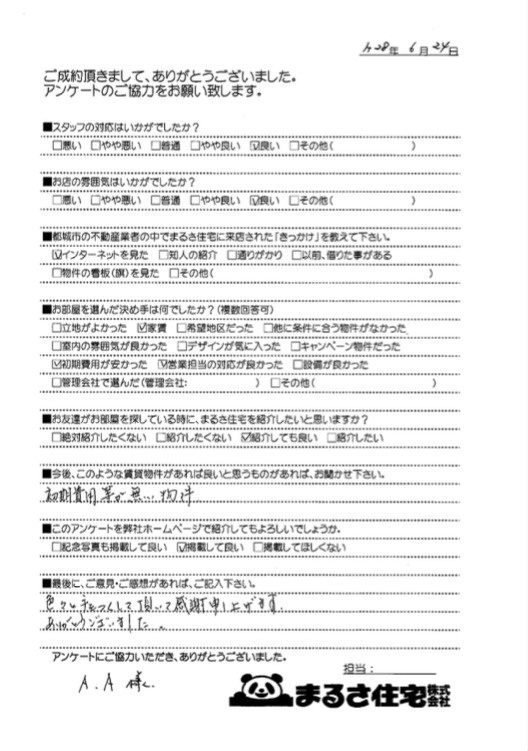 H28年 6月24日
ご成約頂きまして、ありがとうございました。
アンケートのご協力をお願い致します。
■スタッフの対応はいかがでしたか？
□悪い □やや悪い □普通 □やや良い ☑良い □その他( )
■お店の雰囲気はいかがでしたか？
□悪い □やや悪い □普通 □やや良い ☑良い □その他( )
■都城市の不動産業者の中でまるさ住宅に来店された「きっかけ」を教えて下さい。
☑インターネットを見た □知人の紹介 □通りがかり □以前、借りた事がある
□物件の看板(旗)を見た □その他( )
■お部屋を選んだ決め手は何でしたか？(複数回答可)
□立地がよかった ☑家賃 □希望地区だった □他に条件に合う物件がなかった
□室内の雰囲気が良かった □デザインが気に入った □キャンペーン物件だった
☑初期費用が安かった ☑営業担当の対応が良かった □設備が良かった
□管理会社で選んだ(管理会社: ) □その他( )
■お友達がお部屋を探している時に、まるさ住宅を紹介したいと思いますか？
□絶対紹介したくない □紹介したくない ☑紹介しても良い □紹介したい
■今後、このような賃貸物件があれば良いと思うものがあれば、お聞かせ下さい。
初期費用等が無い物件
■このアンケートを弊社ホームページで紹介してもよろしいでしょうか。
□記念写真も掲載して良い ☑掲載して良い □掲載してほしくない
■最後に、ご意見・ご感想があれば、ご記入下さい。
色々と して頂いて感謝申し上げます。
ありがとうございました。
アンケートにご協力いただき、ありがとうございました。
担当:
A.A 様
まるさ住宅株式会社